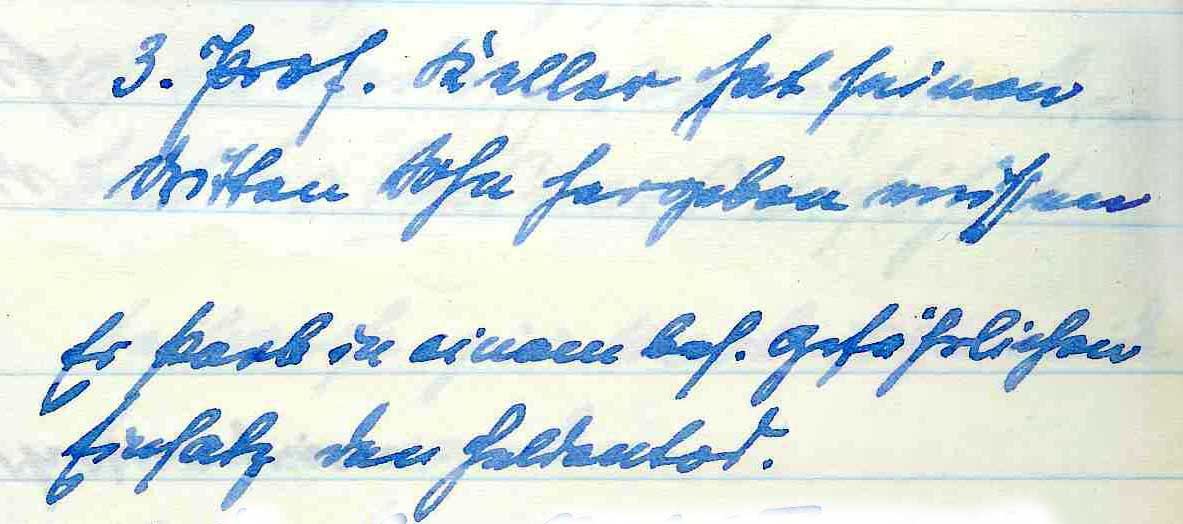 3. Prof. Keller hat seinen
dritten Sohn hergeben müssen
Er starb in einem bes. gefährlichen
Einsatz den Heldentod.